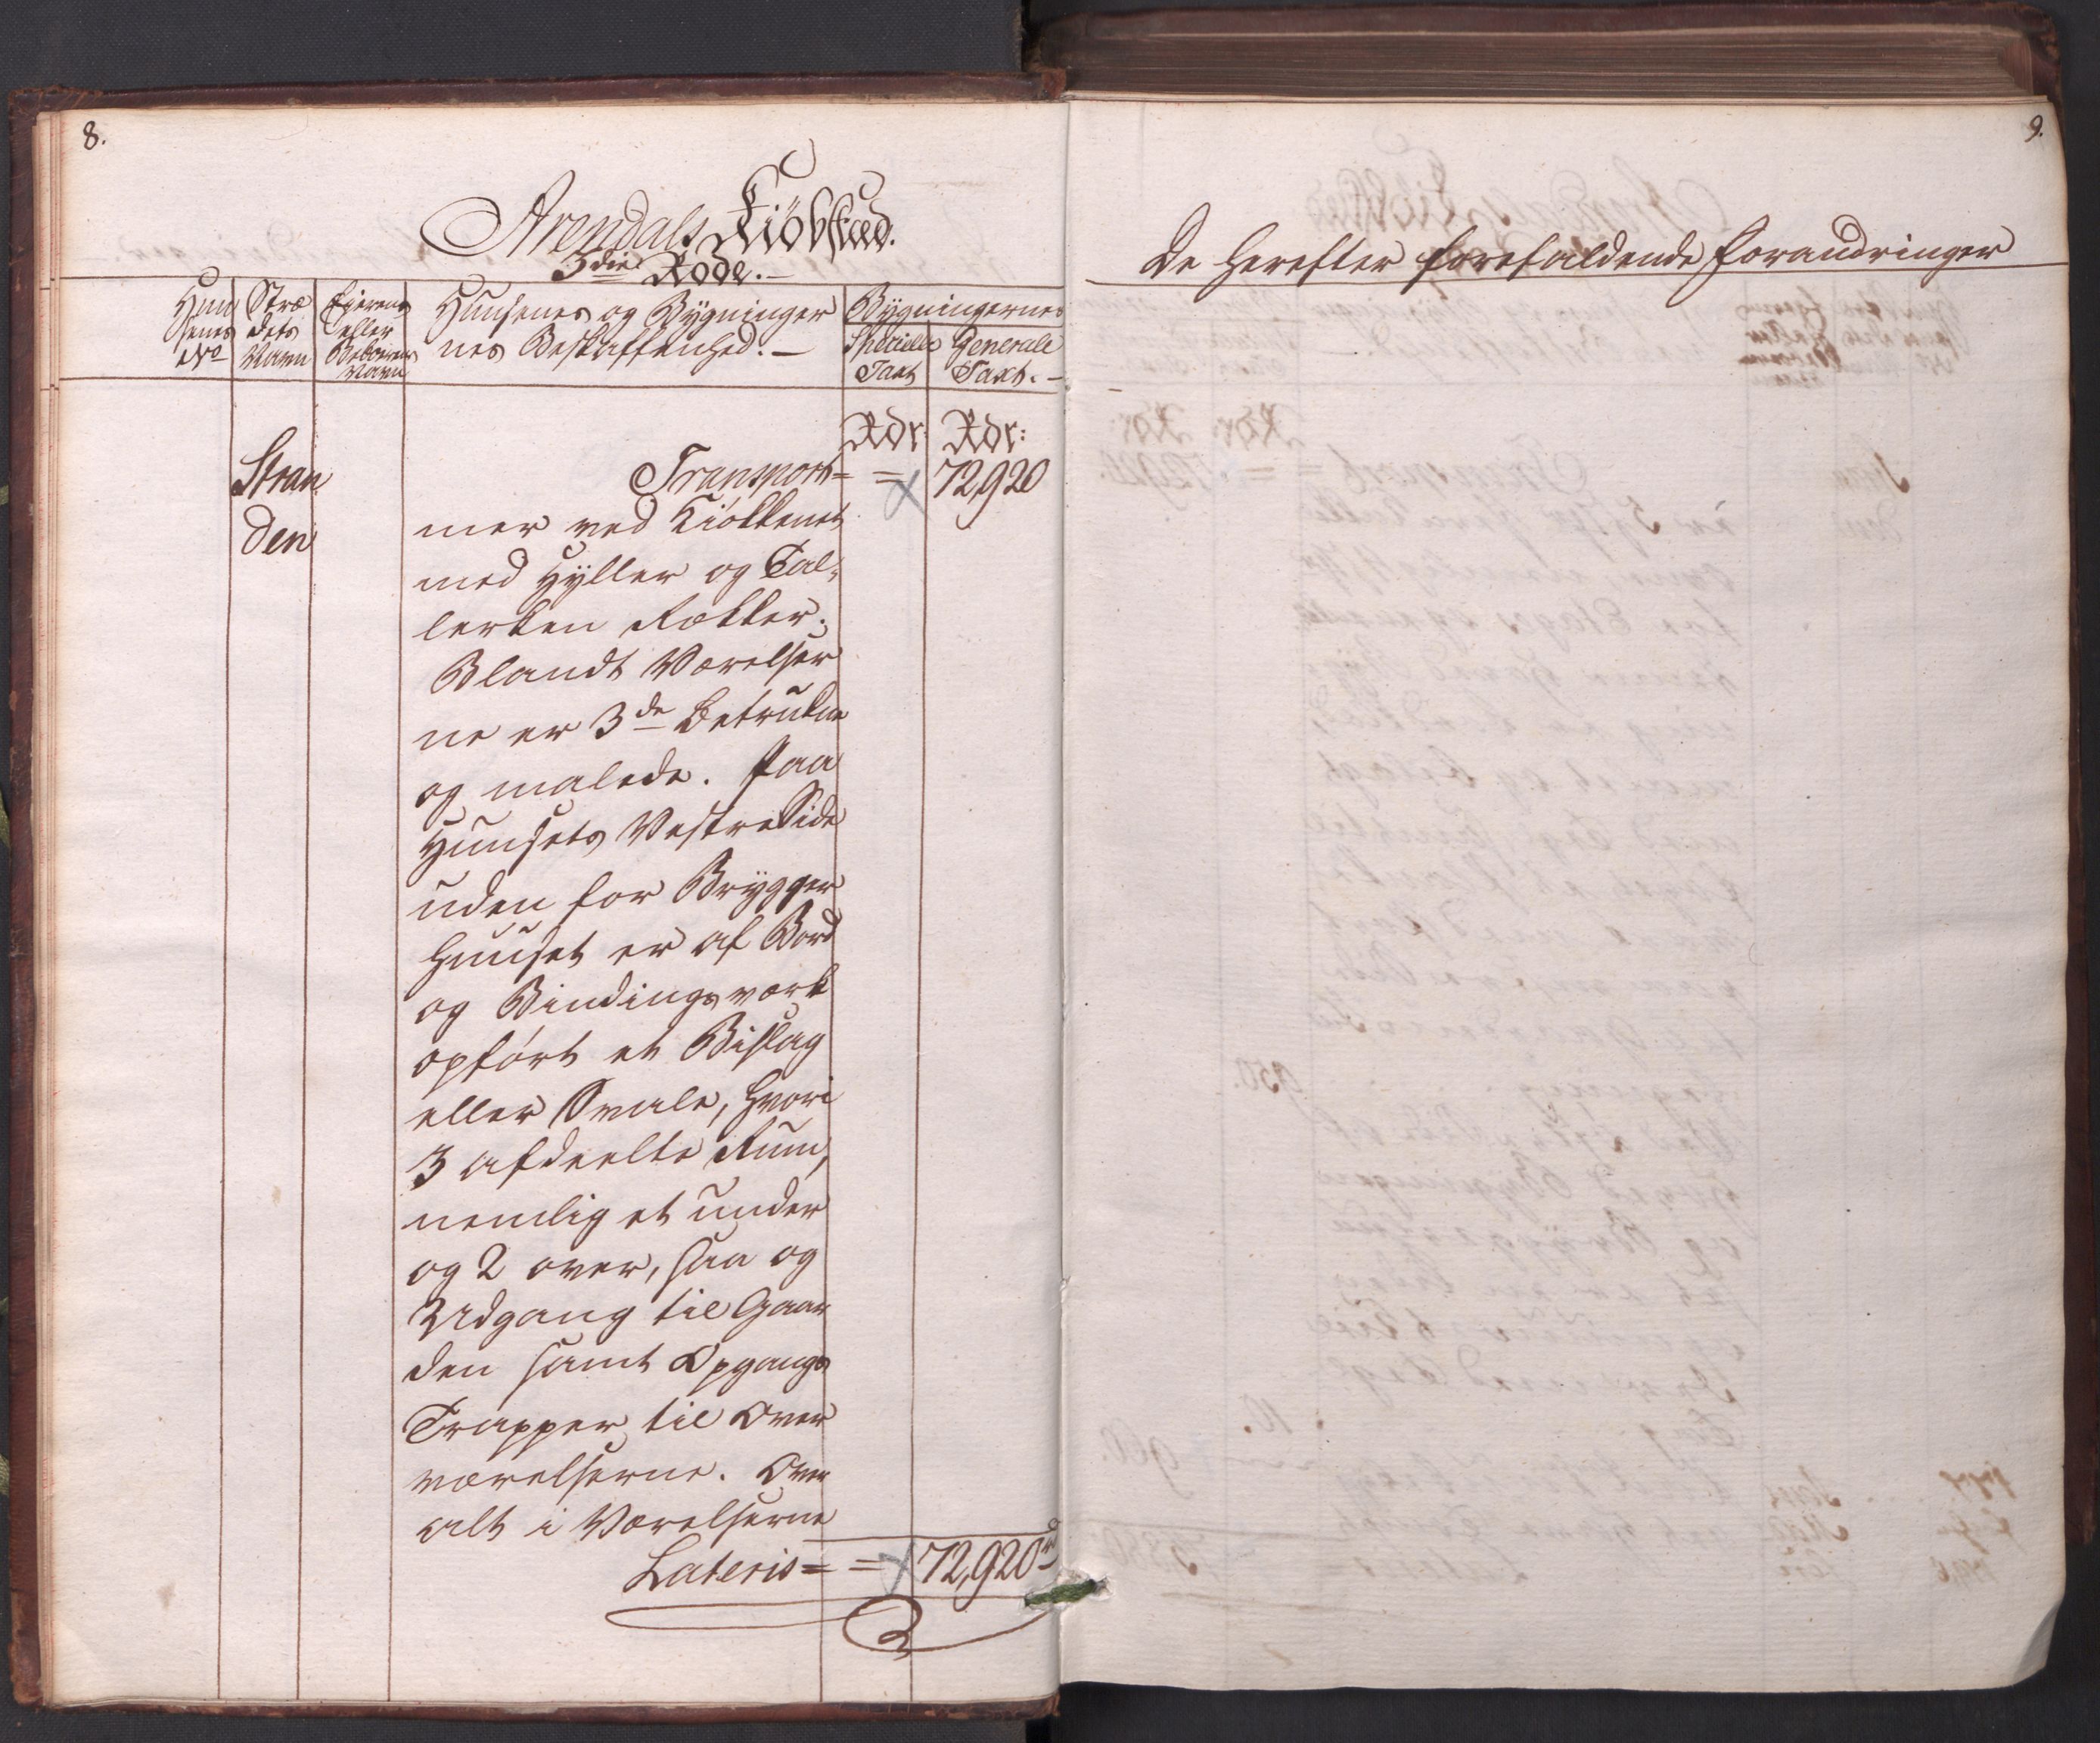 8.
Arendals Kiöbstæd.
3die Rode.
Huu
senes
No
Stræ
dets
Navn
Eierens
eller
Beboerens
Navn
Huusenes og Bygninger
nes Beskaffenhed.
Bygningernes
Specielle
Taxt
Generale
Taxt.
Rdr: Rdr:
Stran
den
Transport = = 72,920
mer ved Kiøkkenet
med Hyller og Tal-
lerken Rækker.
Blandt Værelser
ne er 3de Betrukne
og malede. Paa
Huusets Vestre Side
uden for Brygger
huuset er af Bord
og Bindingsværk
opført et Bislag
eller Svale, hvori
3 afdeelte Rum,
nemlig et under
og 2 over, saa og
Udgang til Gaar
den samt Opgangs
Trapper til Over
værelserne. Over
alt i Værelserne
Lateris = = 72,920rd
9.
De herefter forefaldende Forandringer